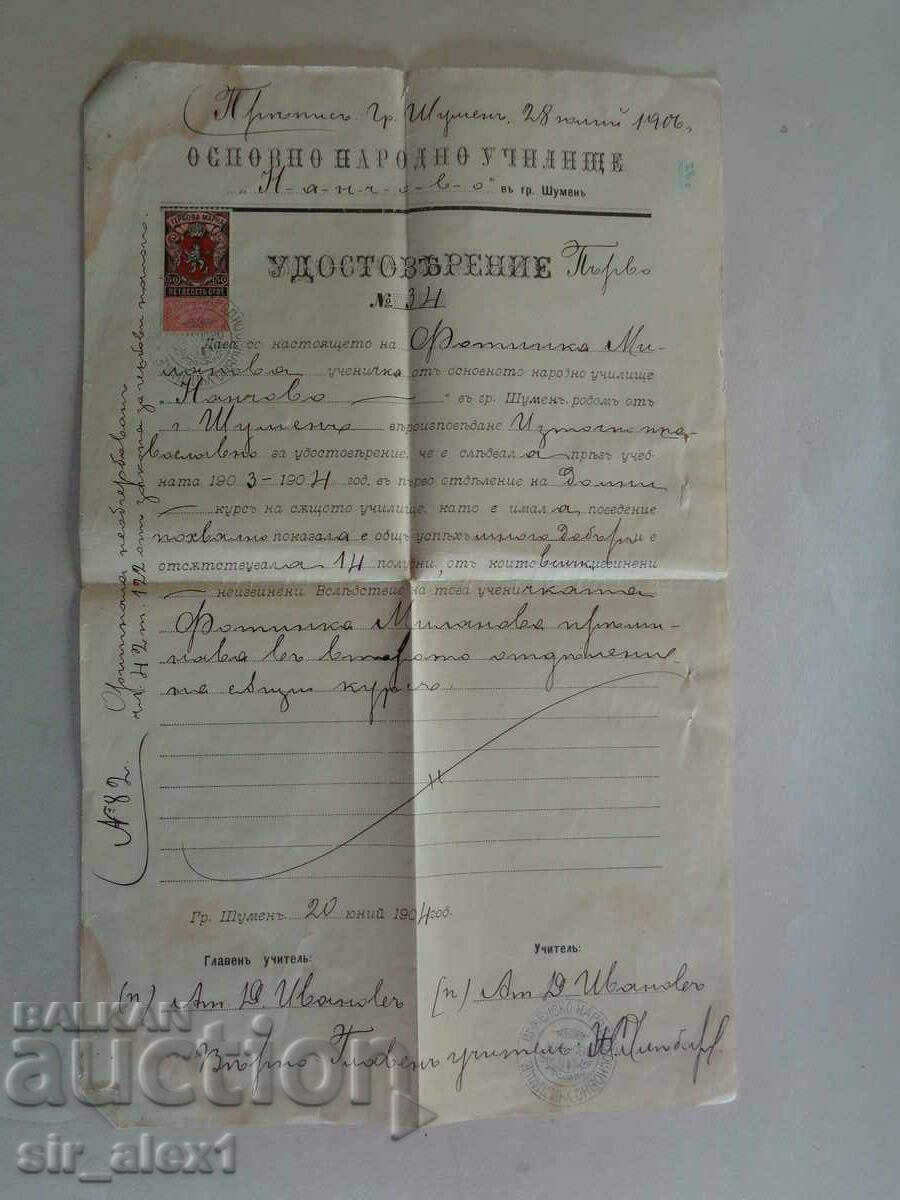 Прѣписъ. Гр. Шуменъ, 28 юлий 1906
ОСНОВНО НАРОДНО УЧИЛИЩЕ
„Н-а-н-ч-о-в-о“ въ гр. Шуменъ
ГЕРБОВА МАРКА
50 50
ПЕТДЕСЕТЬ СТОТ.
УДОСТОВѢРЕНИЕ Първо
№ 34
Дава се настоящето на Фотинка Ми-
ланова ученичка отъ основното народно училище
„Нанчово — “ въ гр. Шуменъ, родомъ отъ
г. Шуменъ вѣроизповѣдане Източно пра-
вославно за удостовѣрение, че е слѣдвала прѣзъ учеб-
ната 1903-1904 год. въ първо отдѣление на Долни
— курсъ на сѫщото училище, като е имала поведение
похвално показала е общъ успѣхъ много добъръ и е
отсѫтствувала 14 полудни, отъ които всички извинени
— неизвинени Вслѣдствие на това ученичката
Фотинка Миланова прѣми-
нава въ второто отдѣление
на сѫщи курсъ.
Гр. Шуменъ 20 юний 1904 год.
Главенъ учитель:
Учитель:
(п) Ат. Д. Ивановъ
(п) Ат. Д. Ивановъ
Вѣрно Главенъ учитель:
№ 82
чл. 42 т. 122 отъ закона за гербови налогъ.
BALKAN
auction
sir_alex1